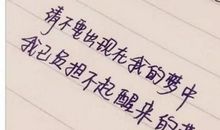 请不要出现在我的梦中
我已负担不起醒来的